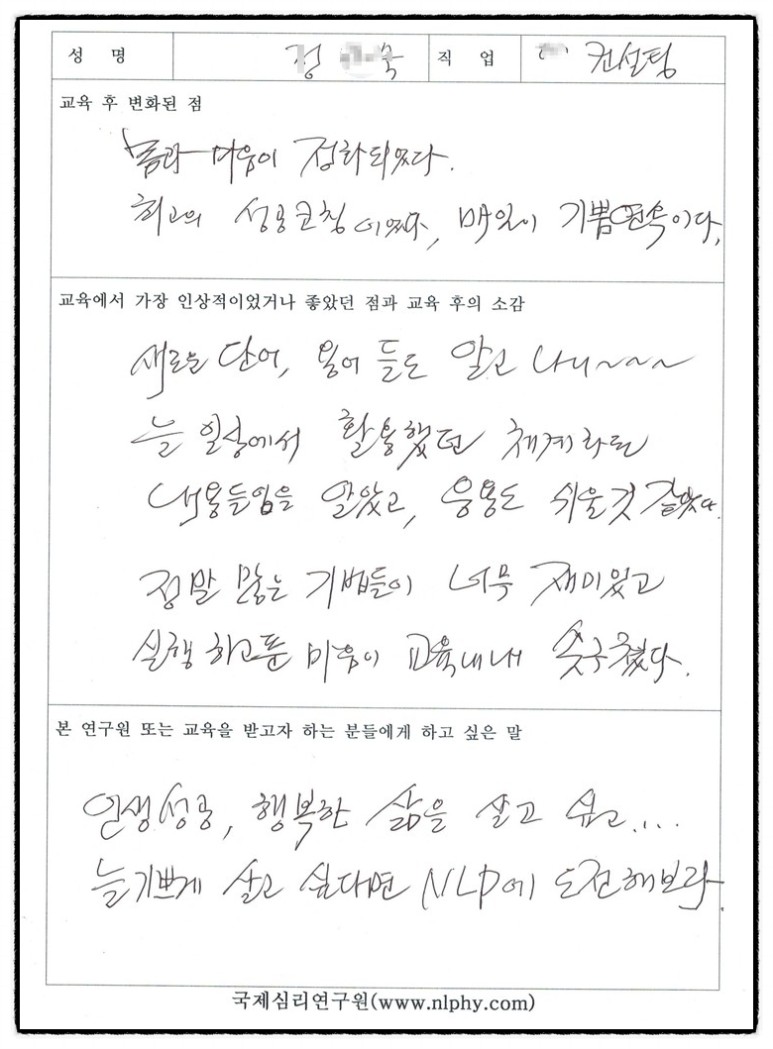 성 명 정 욱 직 업 컨설팅
교육 후 변화된 점
몸과 마음이 정화되었다.
최고의 성공코칭이었다, 매일이 기쁨연속이다.
교육에서 가장 인상적이었거나 좋았던 점과 교육 후의 소감
새로운 단어, 용어들도 알고 나니~~~
늘 일상에서 활용했던 체계화된
내용들임을 알았고, 응용도 쉬울것 같았다.
정말 많은 기법들이 너무 재미있고
실행하고픈 마음이 교육내내 솟구쳤다.
본 연구원 또는 교육을 받고자 하는 분들에게 하고 싶은 말
인생성공, 행복한 삶을 살고 싶고....
늘 기쁘게 살고 싶다면 NLP에 도전해보라.
국제심리연구원(www.nlphy.com)